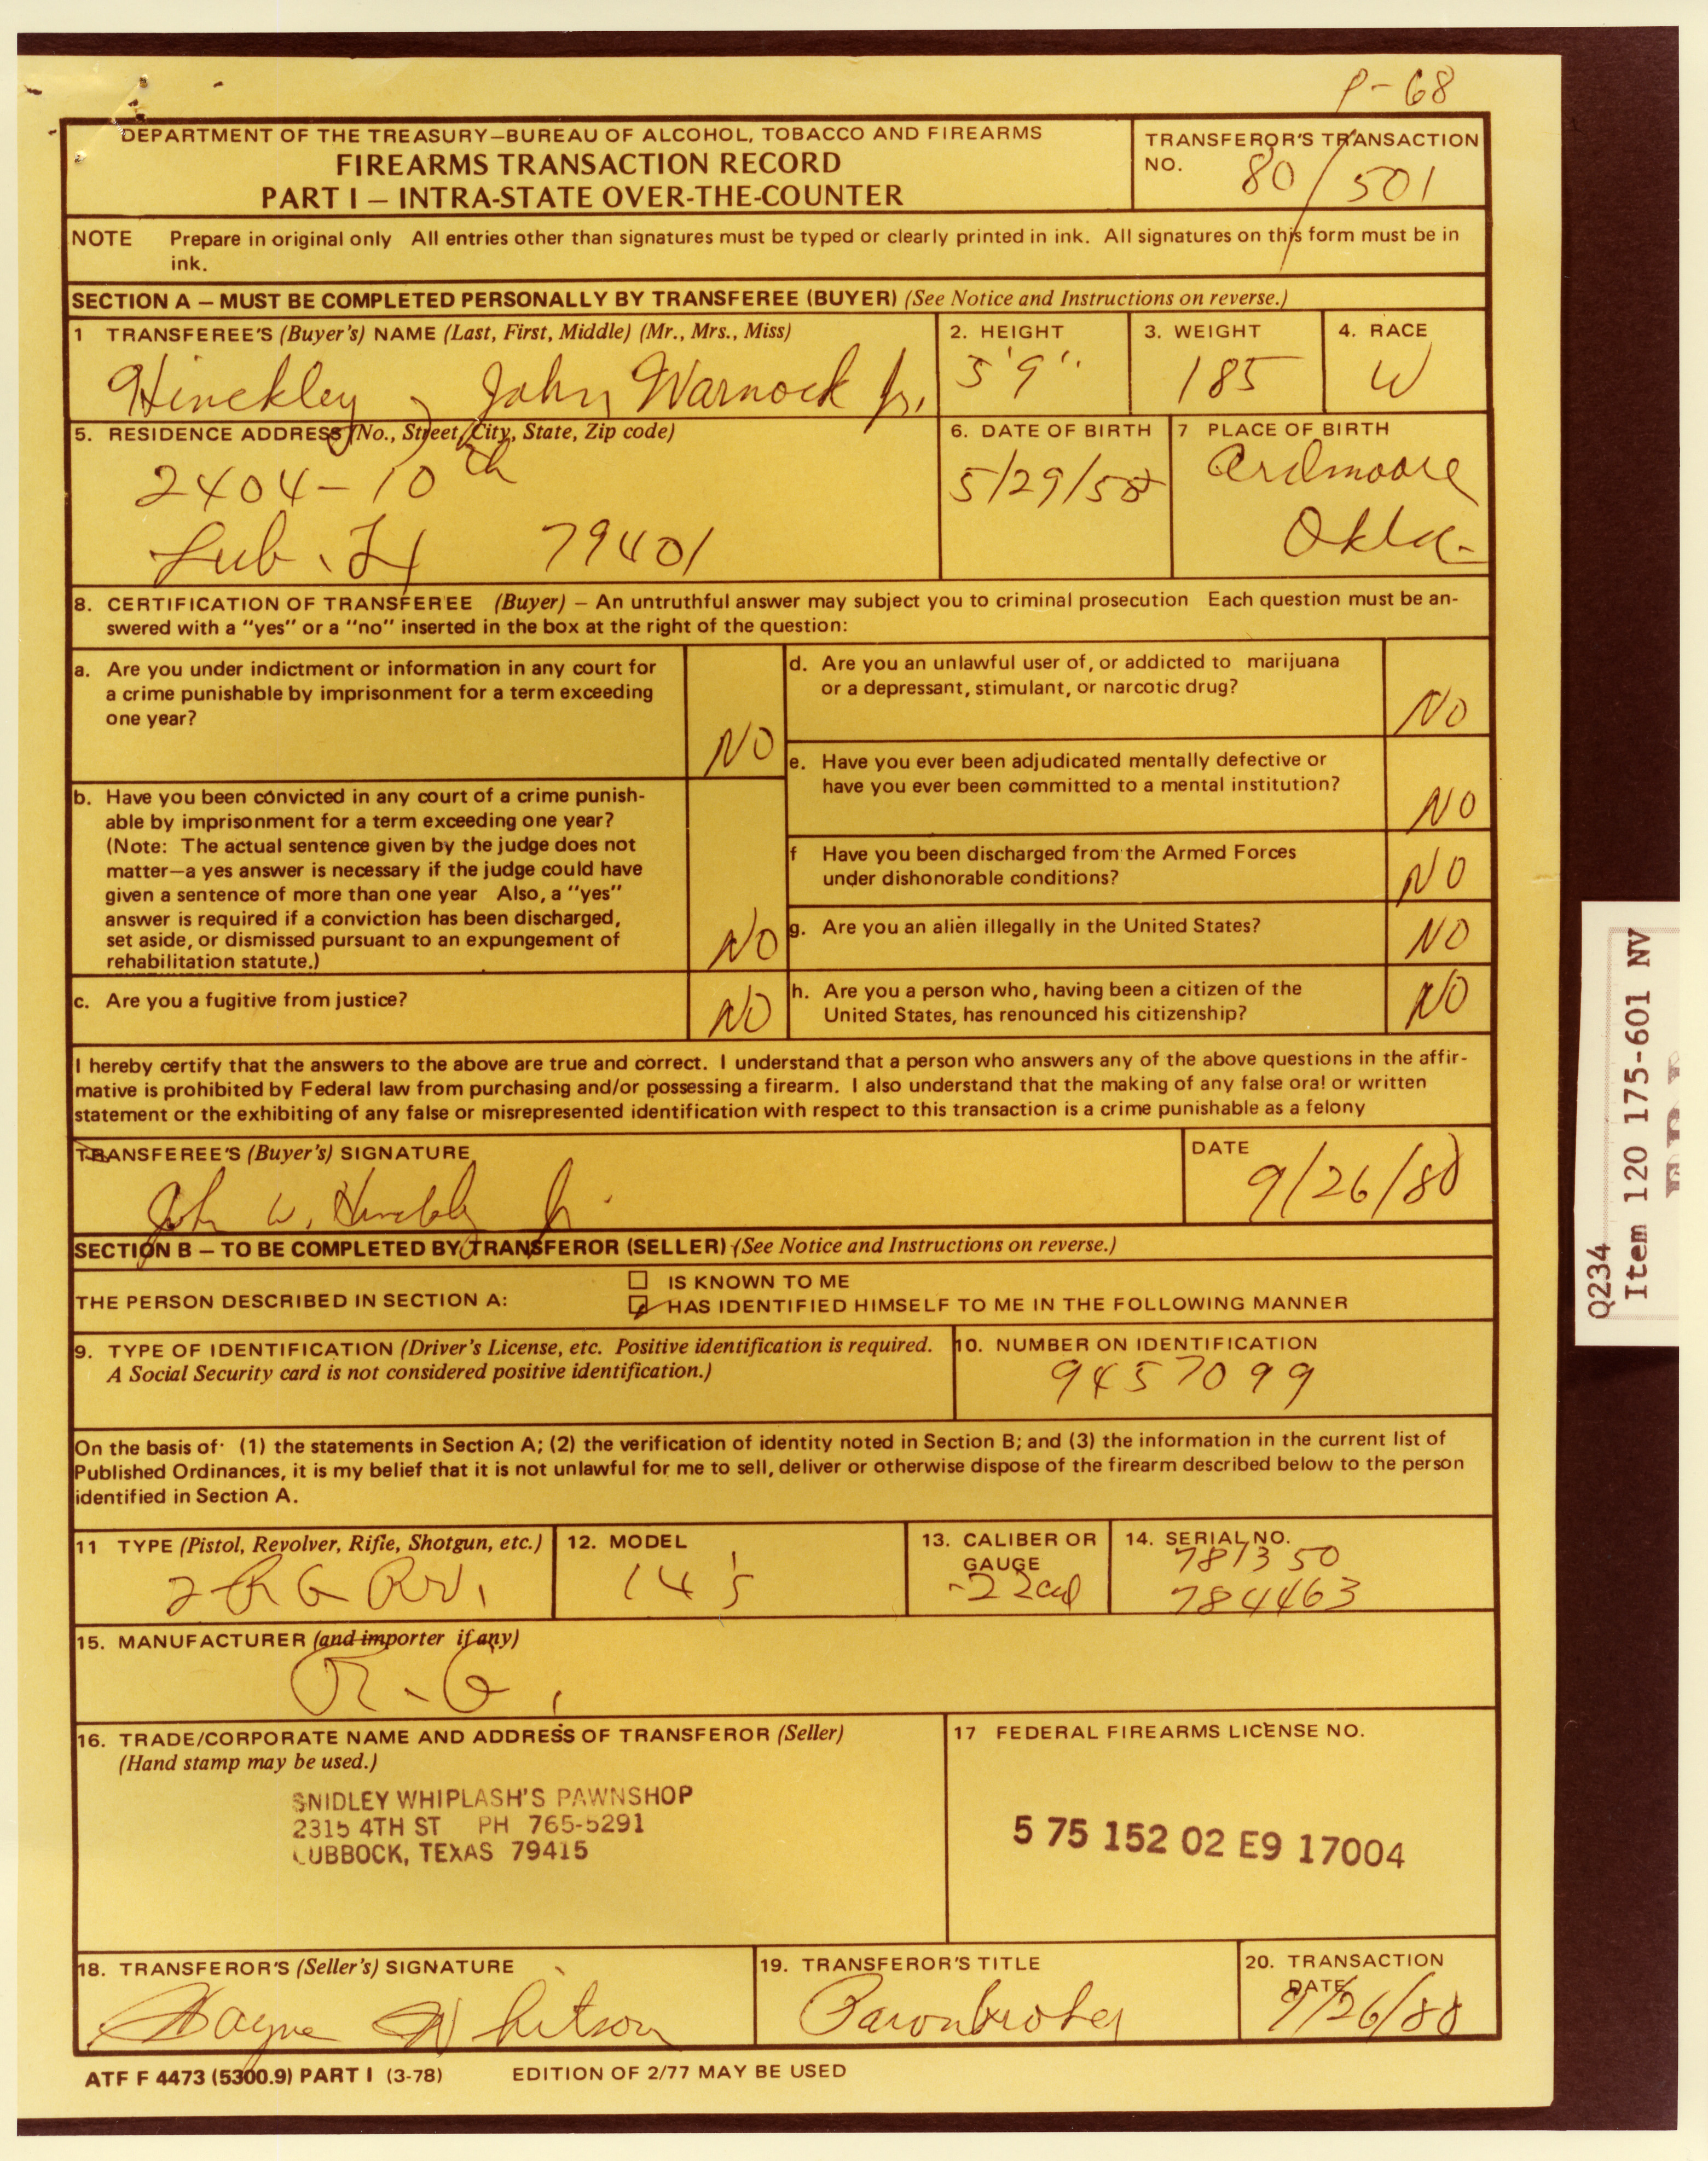 P-68
DEPARTMENT OF THE TREASURY—BUREAU OF ALCOHOL, TOBACCO AND FIREARMS
FIREARMS TRANSACTION RECORD
PART I — INTRA-STATE OVER-THE-COUNTER
TRANSFEROR'S TRANSACTION
NO. 80/501
NOTE Prepare in original only All entries other than signatures must be typed or clearly printed in ink. All signatures on this form must be in
ink.
SECTION A — MUST BE COMPLETED PERSONALLY BY TRANSFEREE (BUYER) (See Notice and Instructions on reverse.)
1 TRANSFEREE'S (Buyer's) NAME (Last, First, Middle) (Mr., Mrs., Miss)
Hinckley, John Warnock Jr.
2. HEIGHT
5'9"
3. WEIGHT
185
4. RACE
W
5. RESIDENCE ADDRESS (No., Street, City, State, Zip code)
2404-10th
Lub. TX 79401
6. DATE OF BIRTH
5/29/55
7 PLACE OF BIRTH
Ardmoore
Okla.
8. CERTIFICATION OF TRANSFEREE (Buyer) — An untruthful answer may subject you to criminal prosecution Each question must be an-
swered with a "yes" or a "no" inserted in the box at the right of the question:
a. Are you under indictment or information in any court for
a crime punishable by imprisonment for a term exceeding
one year?
NO
b. Have you been convicted in any court of a crime punish-
able by imprisonment for a term exceeding one year?
(Note: The actual sentence given by the judge does not
matter—a yes answer is necessary if the judge could have
given a sentence of more than one year Also, a "yes"
answer is required if a conviction has been discharged,
set aside, or dismissed pursuant to an expungement of
rehabilitation statute.)
NO
c. Are you a fugitive from justice?
NO
d. Are you an unlawful user of, or addicted to marijuana
or a depressant, stimulant, or narcotic drug?
NO
e. Have you ever been adjudicated mentally defective or
have you ever been committed to a mental institution?
NO
f Have you been discharged from the Armed Forces
under dishonorable conditions?
NO
g. Are you an alien illegally in the United States?
NO
h. Are you a person who, having been a citizen of the
United States, has renounced his citizenship?
NO
I hereby certify that the answers to the above are true and correct. I understand that a person who answers any of the above questions in the affir-
mative is prohibited by Federal law from purchasing and/or possessing a firearm. I also understand that the making of any false oral or written
statement or the exhibiting of any false or misrepresented identification with respect to this transaction is a crime punishable as a felony
TRANSFEREE'S (Buyer's) SIGNATURE
John W. Hinckley Jr.
DATE
9/26/80
SECTION B — TO BE COMPLETED BY TRANSFEROR (SELLER) (See Notice and Instructions on reverse.)
THE PERSON DESCRIBED IN SECTION A:
IS KNOWN TO ME
HAS IDENTIFIED HIMSELF TO ME IN THE FOLLOWING MANNER
9. TYPE OF IDENTIFICATION (Driver's License, etc. Positive identification is required.
A Social Security card is not considered positive identification.)
10. NUMBER ON IDENTIFICATION
9457099
On the basis of· (1) the statements in Section A; (2) the verification of identity noted in Section B; and (3) the information in the current list of
Published Ordinances, it is my belief that it is not unlawful for me to sell, deliver or otherwise dispose of the firearm described below to the person
identified in Section A.
11 TYPE (Pistol, Revolver, Rifle, Shotgun, etc.)
2 RG Rev.
12. MODEL
14's
13. CALIBER OR
GAUGE
-22cal
14. SERIAL NO.
781350
784463
15. MANUFACTURER (and importer if any)
R.G.
16. TRADE/CORPORATE NAME AND ADDRESS OF TRANSFEROR (Seller)
(Hand stamp may be used.)
SNIDLEY WHIPLASH'S PAWNSHOP
2315 4TH ST PH 765-5291
LUBBOCK, TEXAS 79415
17 FEDERAL FIREARMS LICENSE NO.
5 75 152 02 E9 17004
18. TRANSFEROR'S (Seller's) SIGNATURE
Wayne Whitson
19. TRANSFEROR'S TITLE
Pawnbroker
20. TRANSACTION
DATE
9/26/80
ATF F 4473 (5300.9) PART I (3-78) EDITION OF 2/77 MAY BE USED
Q234
Item 120 175-601 NV